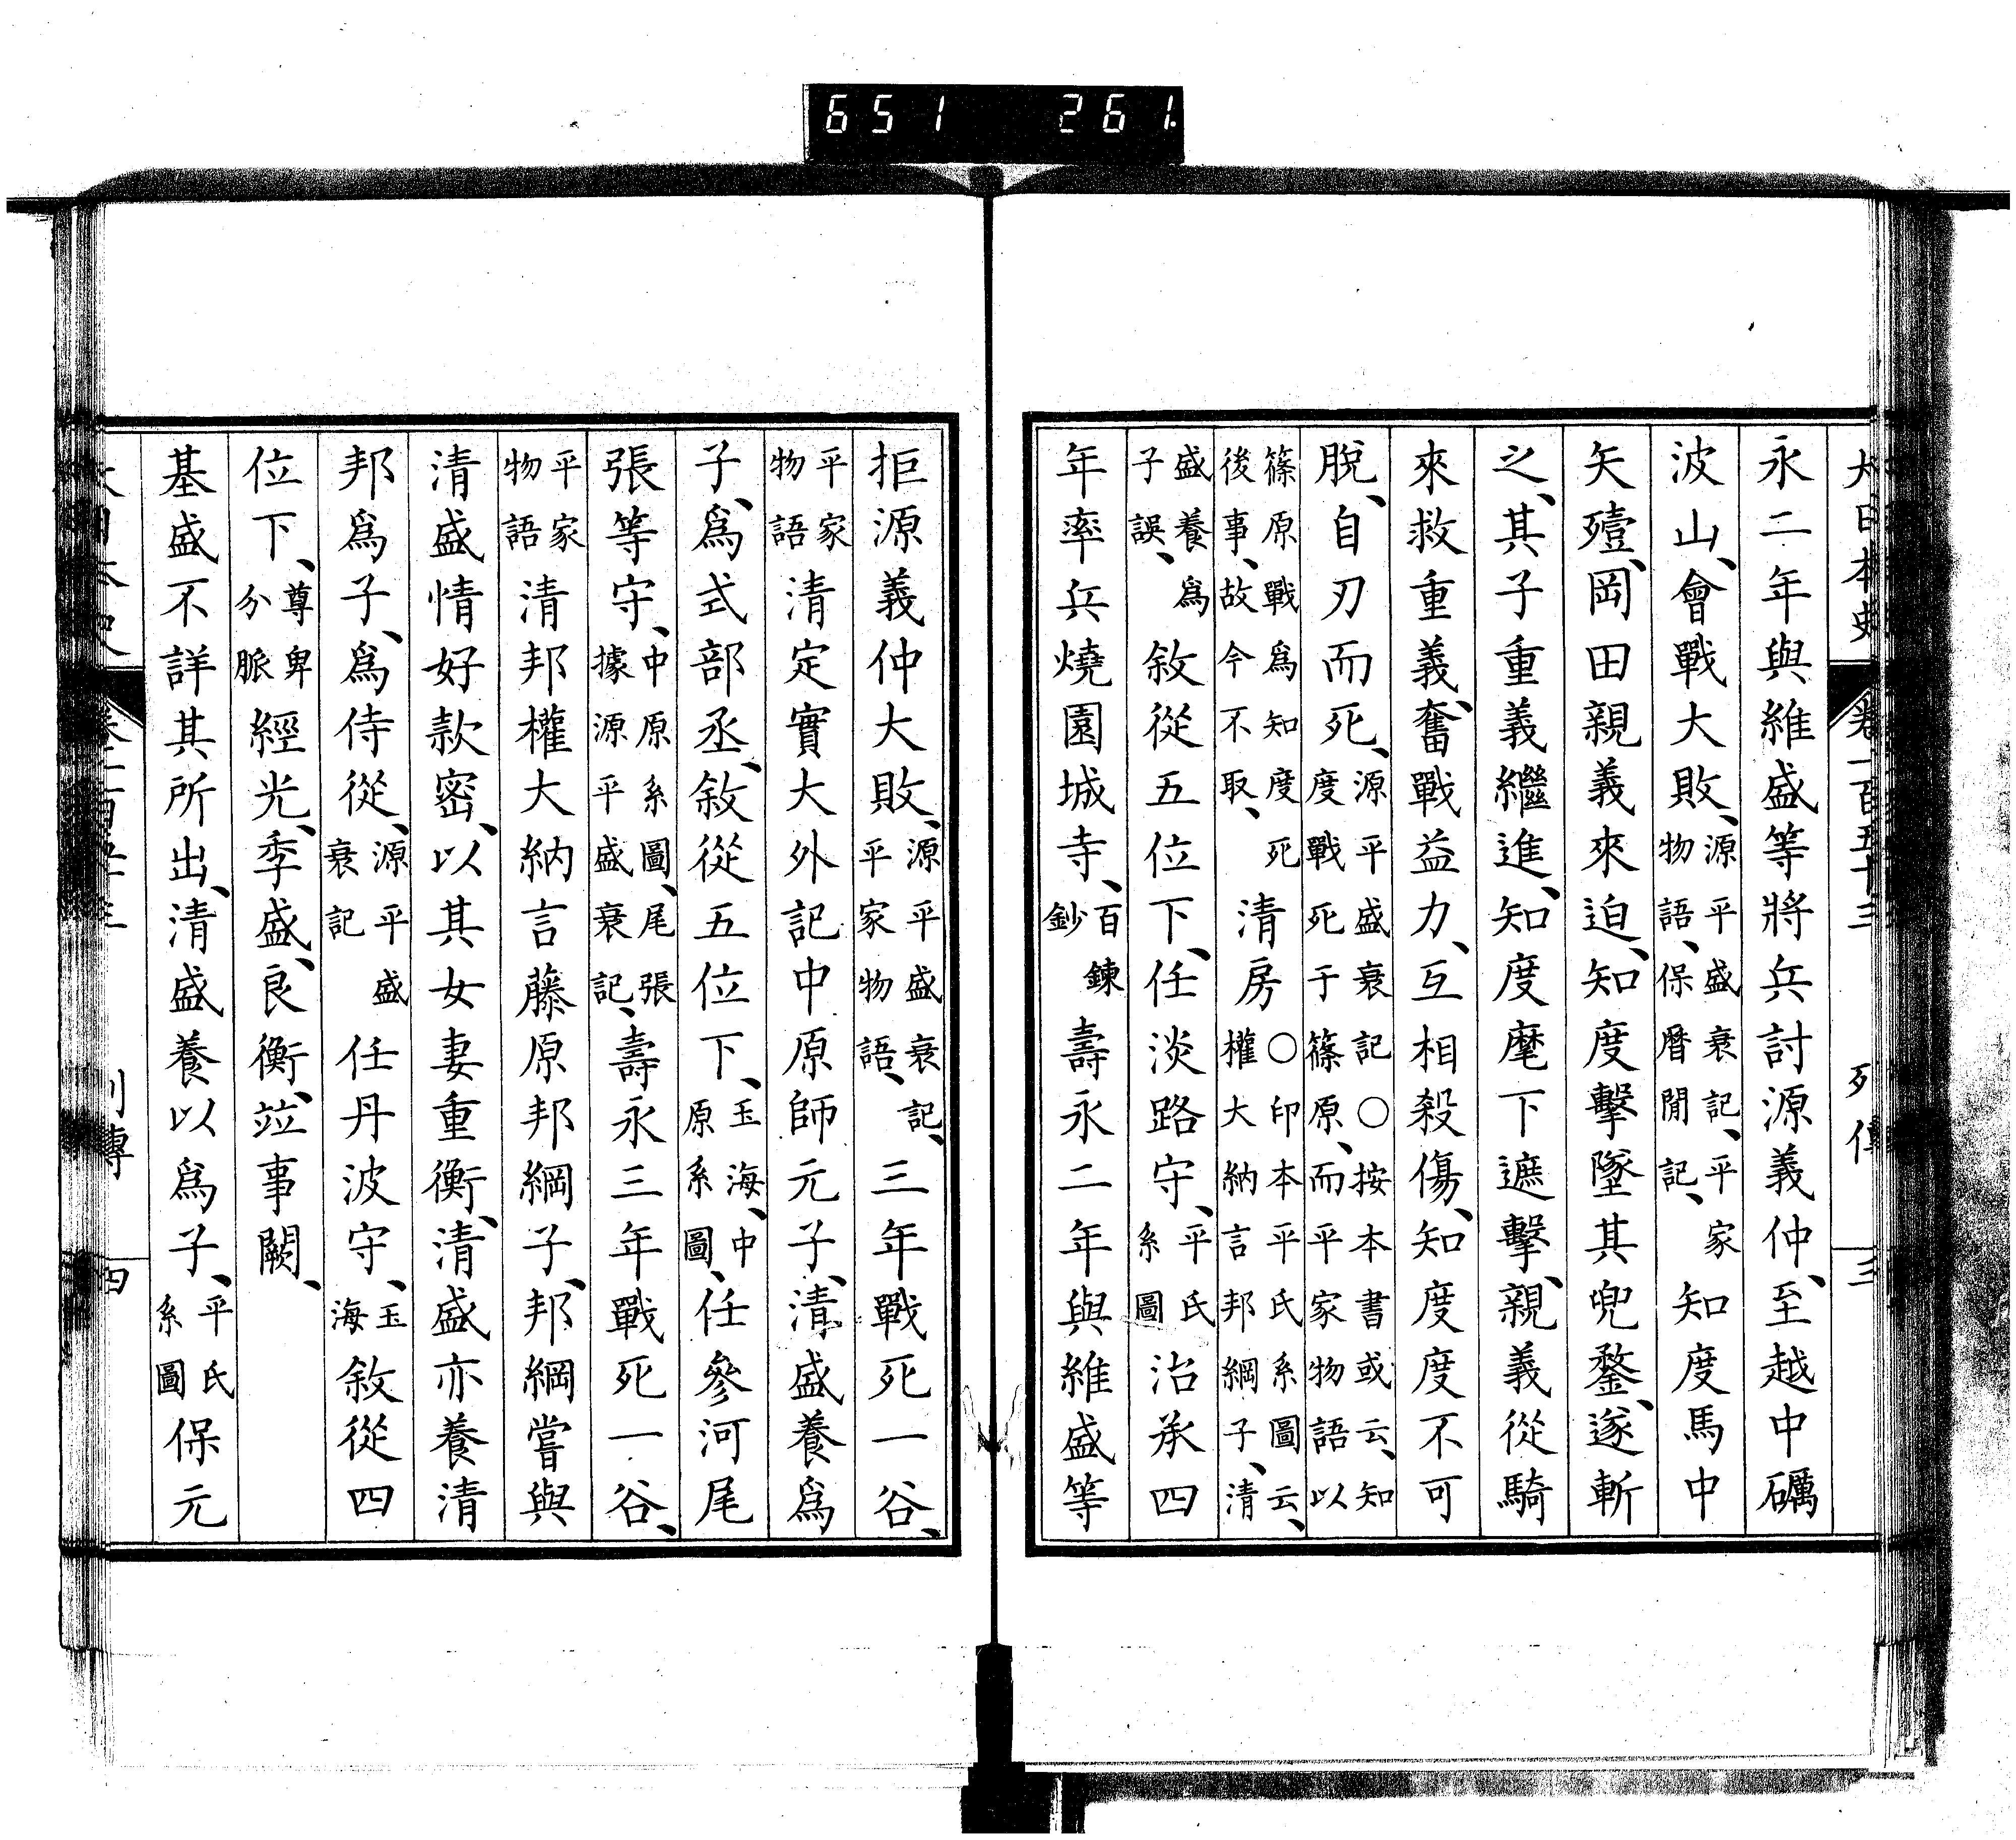 651 261
大日本史 卷一百五十三 列傳 三
永二年與維盛等將兵討源義仲、至越中礪
波山、會戰大敗、源平盛衰記、平家物語、保曆閒記、知度馬中
矢殪、岡田親義來迫、知度擊墜其兜鍪、遂斬
之、其子重義繼進、知度麾下遮擊、親義從騎
來救重義、奮戰益力、互相殺傷、知度度不可
脫、自刃而死、源平盛衰記〇按本書或云、知度戰死于篠原、而平家物語以
篠原戰爲知度死後事、故今不取、清房〇印本平氏系圖云、權大納言邦綱子、清
盛養爲子誤、敘從五位下、任淡路守、平氏系圖治承四
年率兵燒園城寺、百鍊鈔壽永二年與維盛等
拒源義仲大敗、源平盛衰記、平家物語、三年戰死一谷、
平家物語清定實大外記中原師元子、清盛養爲
子、爲式部丞、敘從五位下、玉海、中原系圖、任參河尾
張等守、中原系圖、尾張據源平盛衰記、壽永三年戰死一谷、
平家物語清邦權大納言藤原邦綱子、邦綱嘗與
清盛情好款密、以其女妻重衡、清盛亦養清
邦爲子、爲侍從、源平盛衰記任丹波守、玉海敘從四
位下、尊卑分脈經光、季盛、良衡、竝事闕、
基盛不詳其所出、清盛養以爲子、平氏系圖保元
列傳 四